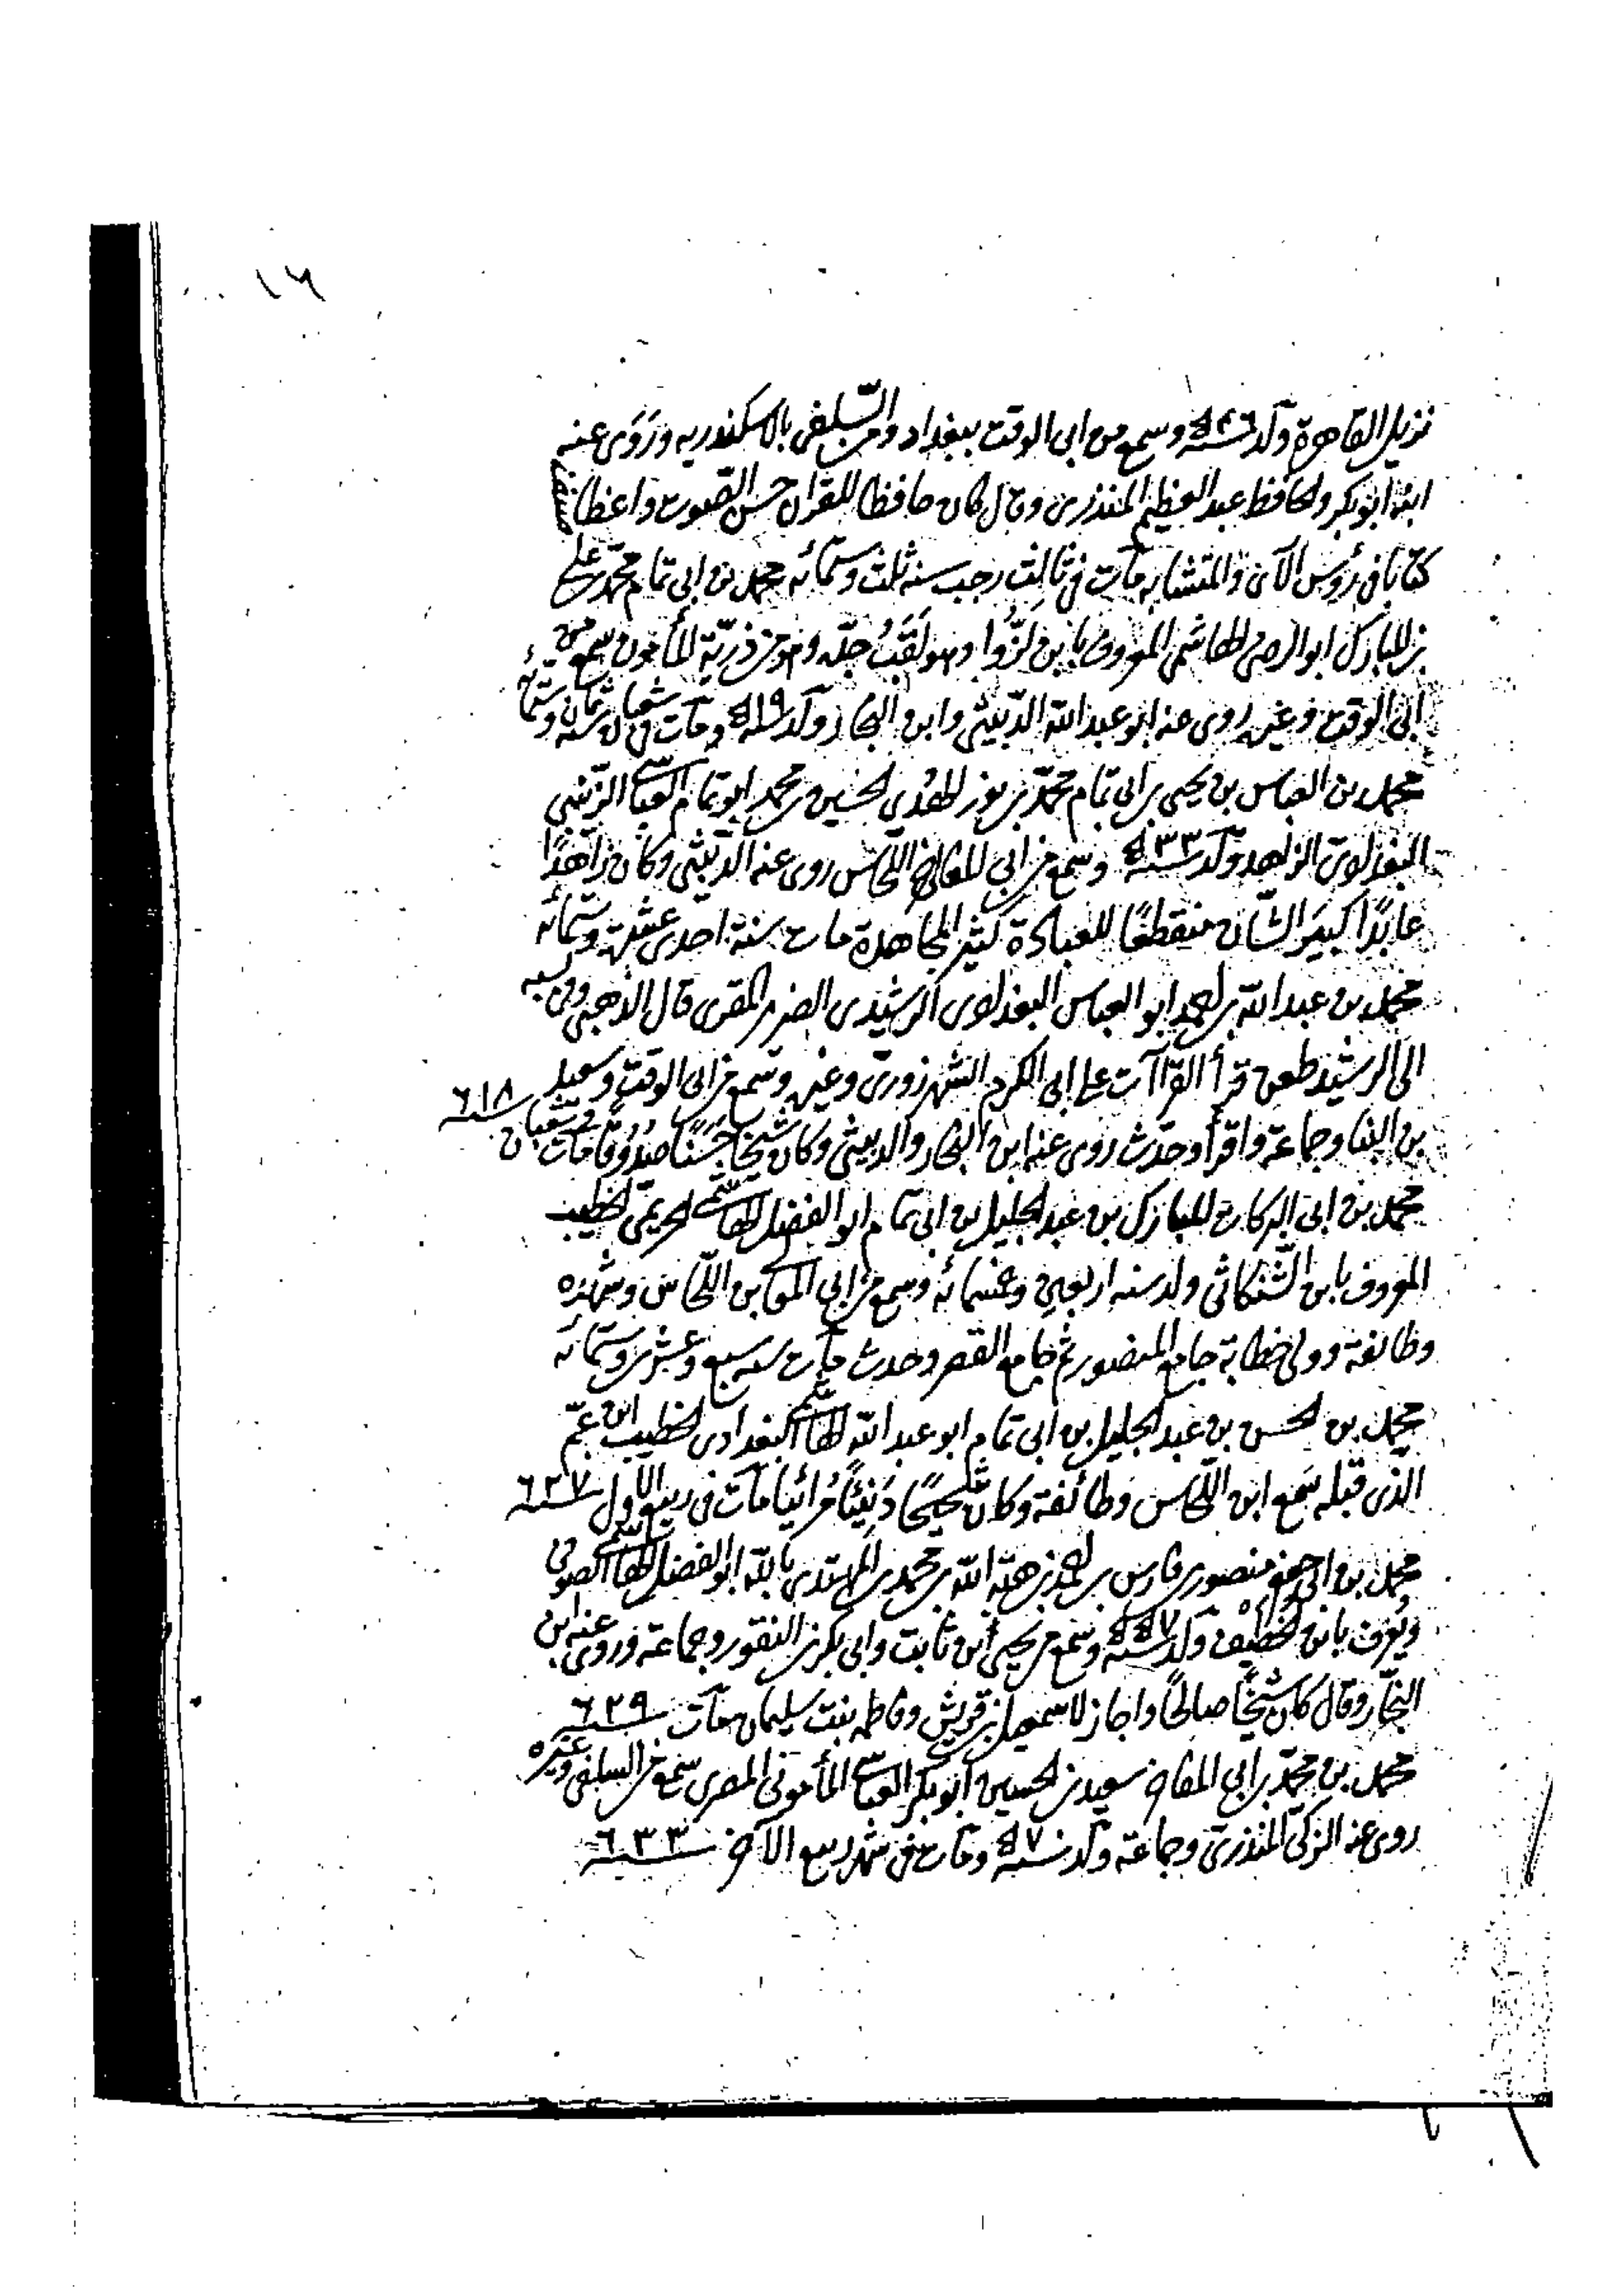 ١٦
نزيل القاهرة ولد سنة ٥٤٦ وسمع من ابى الوقت ببغداد ومن السلفى بالاسكندريه وروى عنه
ابنه ابو بكر والحافظ عبد العظيم المنذرى وقال كان حافظا للقرآن حسن الصوت واعظا
كتابا فى رؤس الآى والمتشابه مات فى ثالث رجب سنه ثلث وستمائه محمد بن ابى تمام محمد بن على
بن المبارك ابو الرضى الهاشمى المعروف بابن لزوا وهو لقب جده وهو من ذرية المأمون سمع من
ابى الوقت وغيره روى عنه ابو عبد الله الدبيثى وابن النجار ولد سنة ٥١٩ ومات فى شعبان سنه ثمان وستمائه
محمد بن العباس بن يحيى بن ابى تمام محمد بن نور الهدى الحسين بن محمد ابو تمام العباسى الزينبى
البغدادى الزاهد ولد سنة ٥٣٣ وسمع من ابى المعالى اللحاس روى عنه الدبيثى وكان زاهدا
عابدا كبير الشان منقطعا للعبادة كثير المجاهدة مات سنة احدى عشرة وستمائه
محمد بن عبد الله بن احمد ابو العباس البغدادى الرشيدى الضرير المقرى قال الذهبى وفى نسبه
الى الرشيد طعن قرأ القراآت على ابى الكرم الشهرزورى وغيره وسمع من ابى الوقت وسعيد
بن البنا وجماعة واقرأ وحدث روى عنه ابن النجار والدبيثى وكان شيخا حسنا صدوقا مات فى شعبان سنة ٦١٨
محمد بن ابى البركات المبارك بن عبد الجليل بن ابى تمام ابو الفضل الهاشمى الحريمى الخطيب
المعروف بابن الشنكاتى ولد سنه اربعين وخمسمائه وسمع من ابى المعالى بن اللحاس وشهده
وطائفة وولى خطابة جامع المنصور ثم جامع القصر وحدث مات سنه سبع وعشرين وستمائه
محمد بن الحسن بن عبد الجليل بن ابى تمام ابو عبد الله الهاشمى البغدادى الخطيب ابن عم
الذى قبله سمع ابن اللحاس وطائفة وكان شحيحا دنيئا مرائيا مات فى ربيع الاول سنة ٦٢٧
محمد بن ابى جعفر منصور بن فارس بن احمد بن هبة الله بن محمد بن المهتدى بالله ابو الفضل الهاشمى الصوفى
ويعرف بابن الخطيب ولد سنة ٥٥٧ وسمع من يحيى ابن ثابت وابى بكر بن النقور وجماعة وروى عنه ابن
النجار وقال كان شيخا صالحا واجاز لاسمعيل بن قريش وفاطمه بنت سليمان مات سنة ٦٢٩
محمد بن محمد بن ابى المفاخر سعيد بن الحسين ابو بكر العباسى المأمونى المصرى سمع من السلفى وغيره
روى عنه الزكى المنذرى وجماعة ولد سنة ٥٧ ومات فى شهر ربيع الآخر سنة ٦٣٣